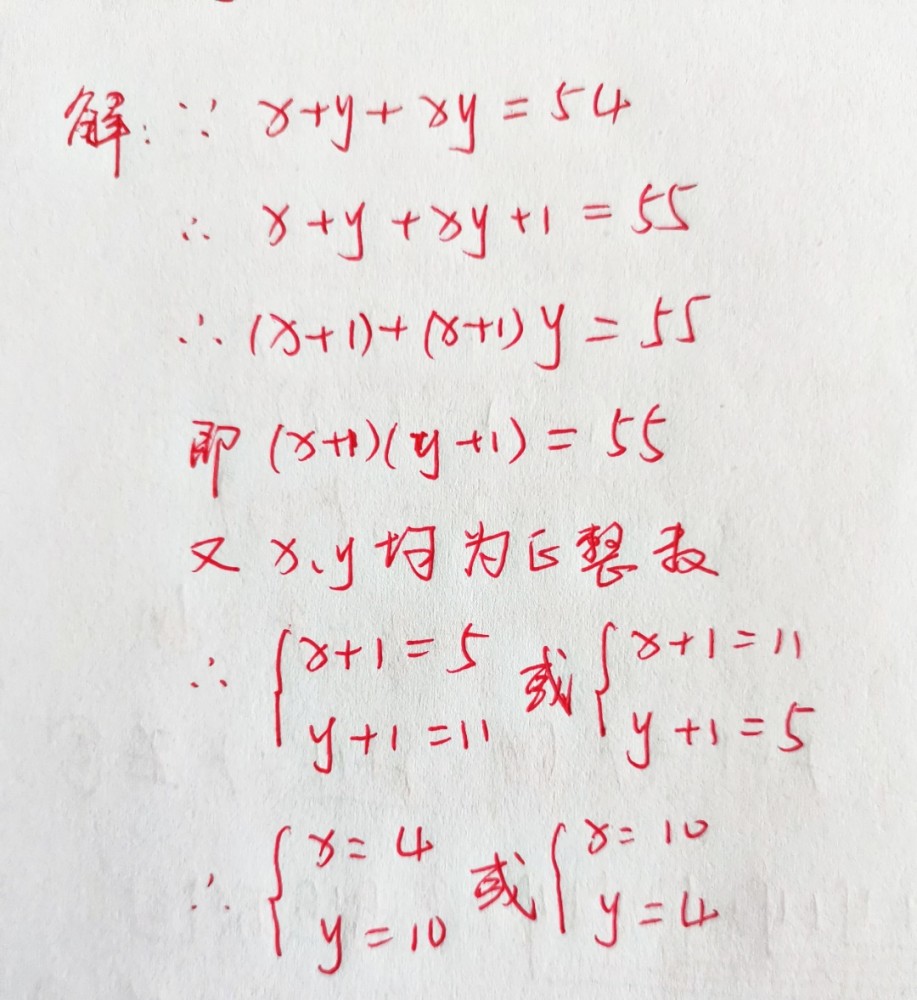 解:∵ x+y+xy=54
∴ x+y+xy+1=55
∴(x+1)+(x+1)y=55
即(x+1)(y+1)=55
又x、y均为正整数
∴ {x+1=5 或 {x+1=11
y+1=11 y+1=5
∴ {x=4 或 {x=10
y=10 y=4